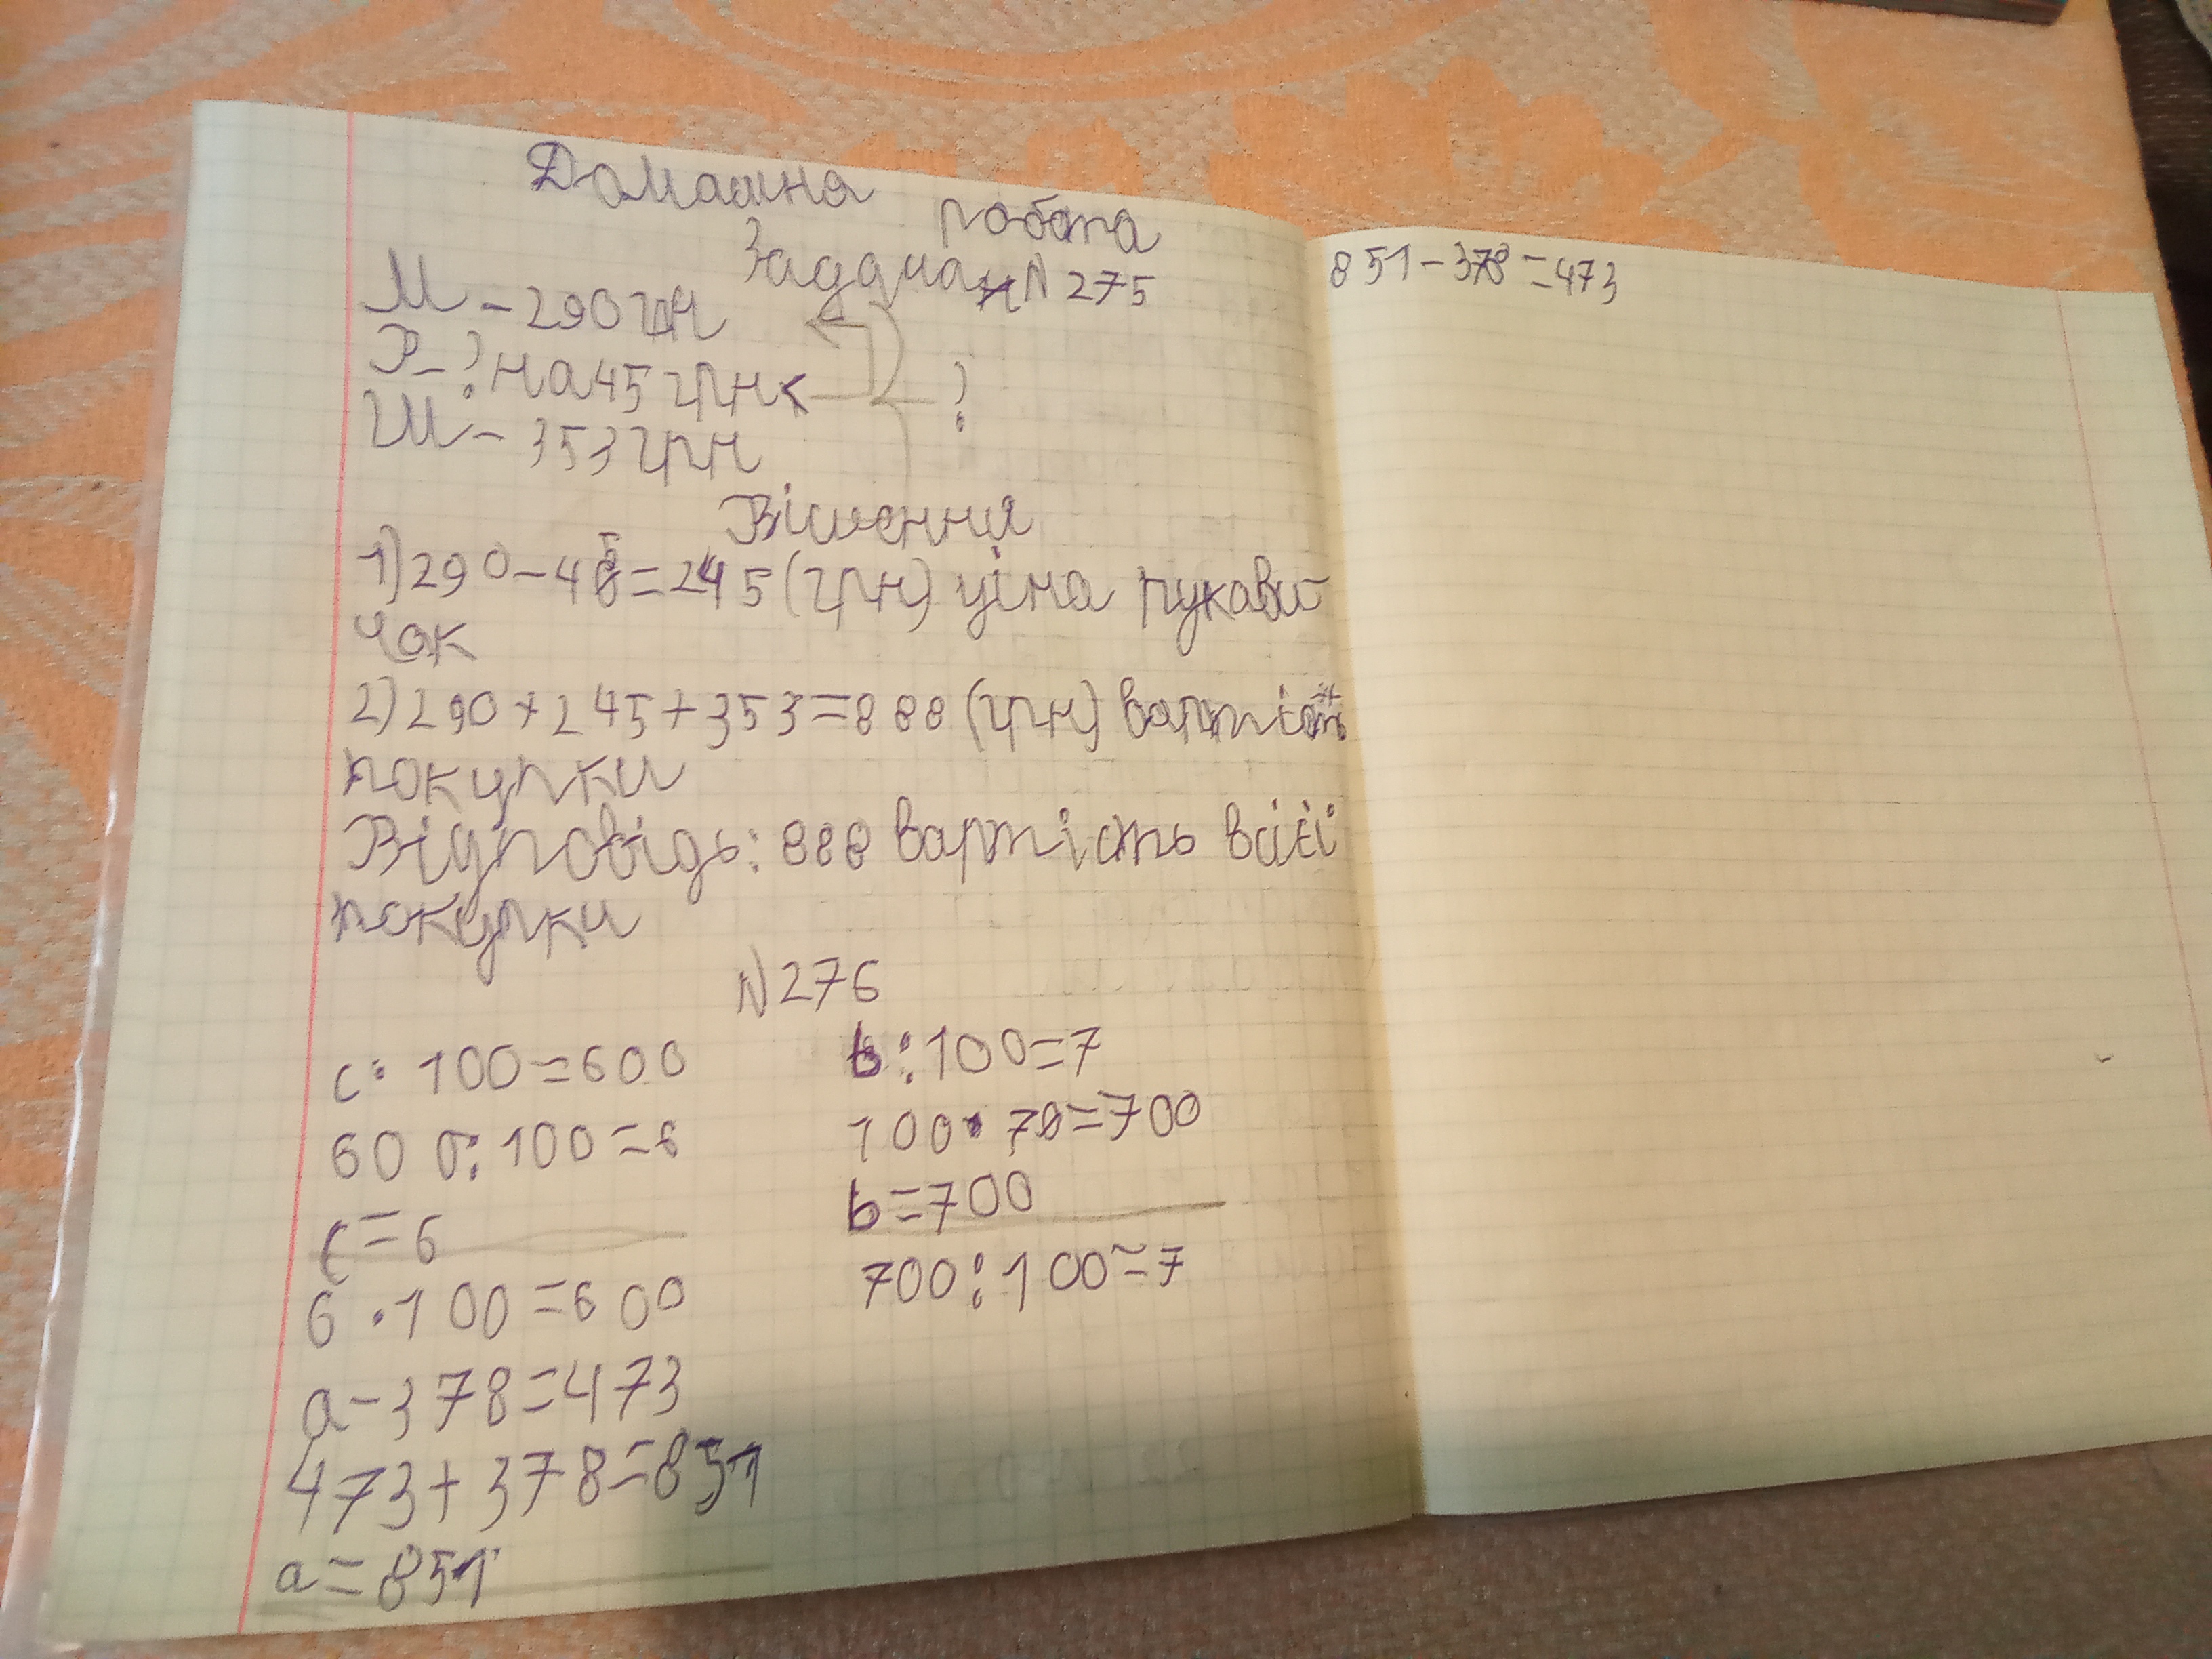 Домашня робота
Задача N 275
М - 290 грн
Р - ? на 45 грн <
?
Ш - 353 грн
Рішення
1) 290 - 45 = 245 (грн) ціна рукави
чок
2) 290 + 245 + 353 = 888 (грн) вартість
покупки
Відповідь: 888 вартість всієї
покупки
N 276
c · 100 = 600
600 : 100 = 6
c = 6
6 · 100 = 600
a - 378 = 473
473 + 378 = 851
a = 851
b : 100 = 7
100 · 7 = 700
b = 700
700 : 100 = 7
851 - 378 = 473